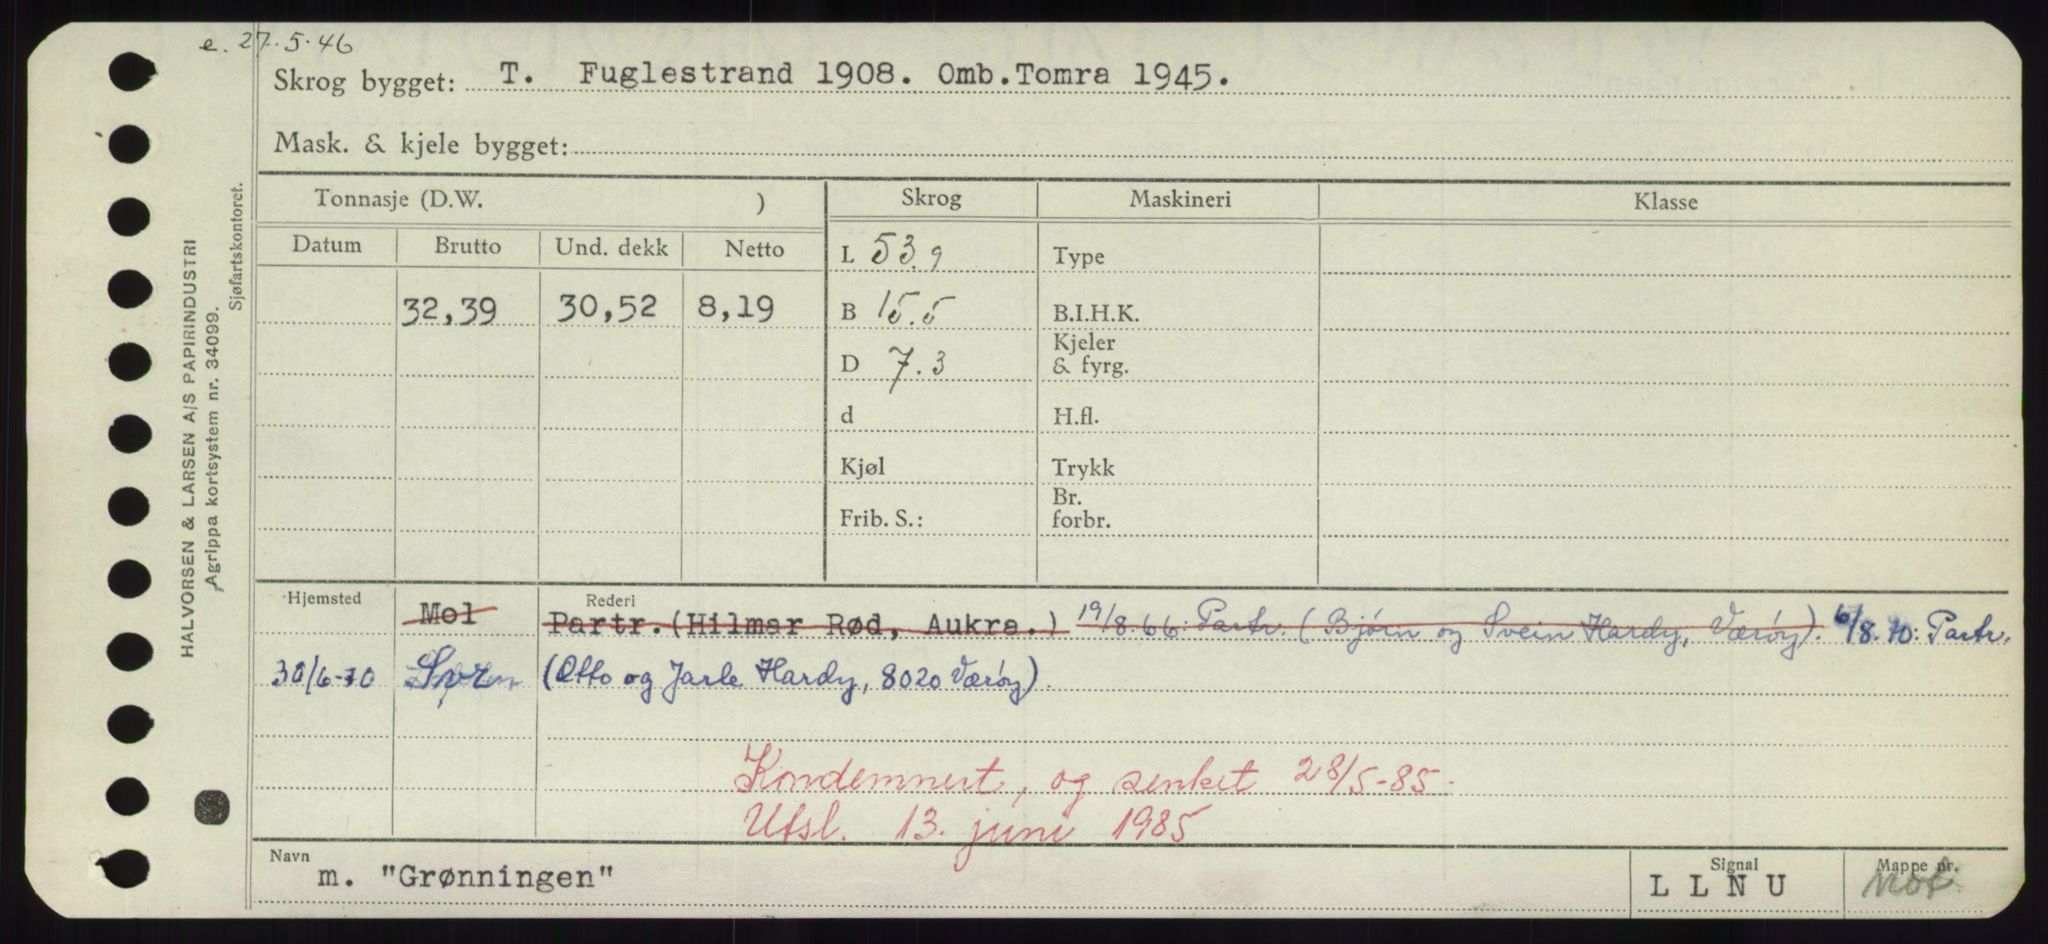 e. 27.5.46
Skrog bygget: T. Fuglestrand 1908. Omb.Tomra 1945.
Mask. & kjele bygget:
Tonnasje (D.W. ) Skrog Maskineri Klasse
Datum Brutto Und. dekk Netto L 53.9 Type
32,39 30,52 8,19 B 15.5 B.I.H.K.
D 7.3 Kjeler & fyrg.
d H.fl.
Kjøl Trykk
Frib. S.: Br. forbr.
Hjemsted Rederi
Mol Partr.(Hilmar Rød, Aukra.) 19/8.66: Partr. (Bjørn og Svein Hardy, Værøy). 6/8.70: Partr.
30/6-70 (Otto og Jarle Hardy, 8020 Værøy).
Kondemnert, og senket 28/5-85.
Utsl. 13. juni 1985
Navn m. "Grønningen" Signal L L N U Mappe nr.
HALVORSEN & LARSEN A/S PAPIRINDUSTRI
Agrippa kortsystem nr. 34099.
Sjøfartskontoret.